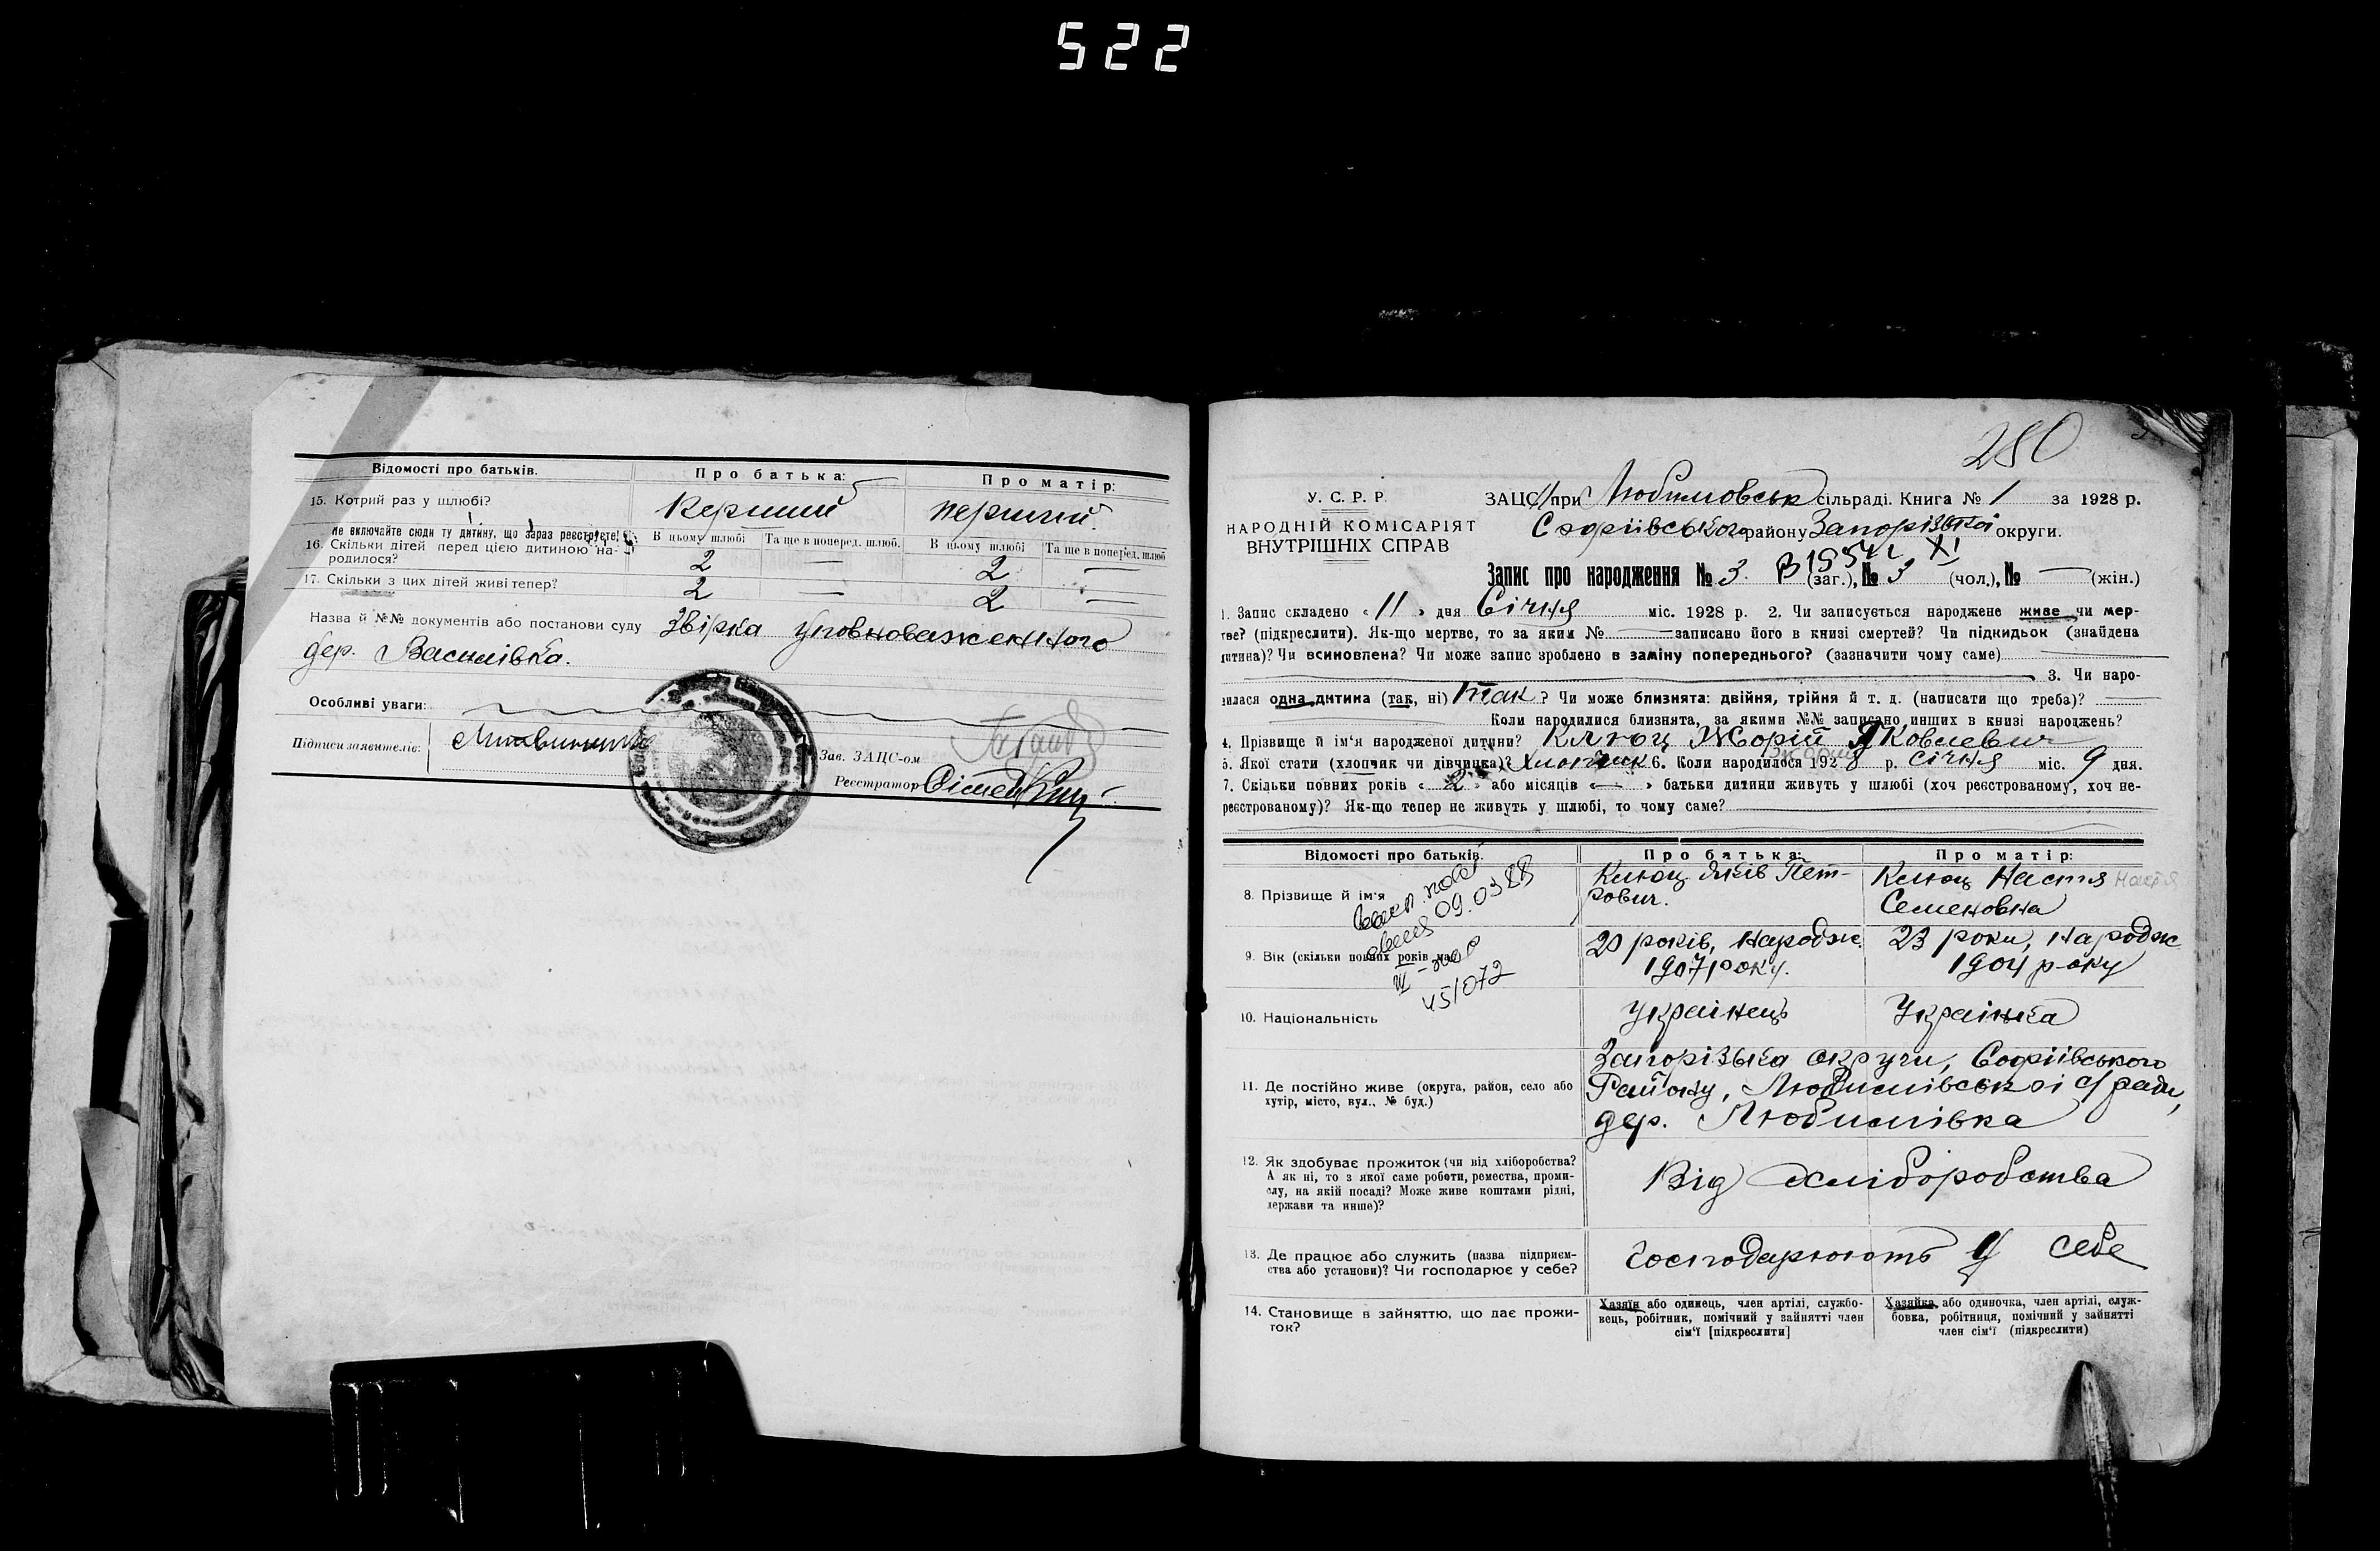 522
Відомості про батьків. Про батька: Про матір:
15. Котрий раз у шлюбі? Перший перший.
Не включайте сюди ту дитину, що зараз реєструєте! В цьому шлюбі Та ще в поперед. шлюб. В цьому шлюбі Та ще в поперед. шлюб
16. Скільки дітей перед цією дитиною на-
родилося? 2 — 2 —
17. Скільки з цих дітей живі тепер? 2 — 2 —
Назва й №№ документів або постанови суду Звірка уповноваженного
дер. Василівка.
Особливі уваги:
Підписи заявителів: Литвиненко
Зав. ЗАЦС-ом
Реєстратор
280
У. С. Р. Р. ЗАЦС при Любимовськ сільраді. Книга № 1 за 1928 р.
НАРОДНІЙ КОМІСАРІЯТ Софіївського району Запорізької округи.
ВНУТРІШНІХ СПРАВ
Запис про народження № 3. (заг.), № 3 (чол.), № — (жін.)
1. Запис складено « 11 » дня Січня міс. 1928 р. 2. Чи записується народжене живе чи мер-
тве? (підкреслити). Як-що мертве, то за яким № — записано його в книзі смертей? Чи підкидьок (знайдена
дитина)? Чи всиновлена? Чи може запис зроблено в заміну попереднього? (зазначити чому саме)
3. Чи наро-
дилася одна дитина (так, ні) так ? Чи може близнята: двійня, трійня й т. д. (написати що треба)?
Коли народилися близнята, за якими №№ записано инших в книзі народжень?
4. Прізвище й ім'я народженої дитини? Клюц Жорій Яковлевич
5. Якої стати (хлопчяк чи дівчинка)? Хлопчик 6. Коли народилося 1928 р. січня міс. 9 дня.
7. Скільки повних років « 2 » або місяців « — » батьки дитини живуть у шлюбі (хоч реєстрованому, хоч не-
реєстрованому)? Як-що тепер не живуть у шлюбі, то чому саме?
Відомості про батьків. Про батька: Про матір:
8. Прізвище й ім'я Клюц Яків Пет- Клюц Настя Настя
рович. Семеновна
09.03.88
9. Вік (скільки повних років має) 20 років, народж. 23 роки, народж
1907 року. 1904 року
451072
10. Національність Українець Українка
Запорізька округи, Софіївського
11. Де постійно живе (округа, район, село або Району, Любимівської с/ради,
хутір, місто, вул., № буд.)
дер. Любимівка
12. Як здобуває прожиток (чи від хліборобства? Від хліборобства
А як ні, то з якої саме роботи, ремества, проми-
слу, на якій посаді? Може живе коштами рідні,
держави та инше)?
13. Де працює або служить (назва підприєм- Господарюють у себе
ства або установи)? Чи господарює у себе?
14. Становище в зайняттю, що дає прожи- Хазяїн або одинець, член артілі, службо- Хазяйка або одиночка, член артілі, служ-
ток? вець, робітник, помічний у зайнятті член бовка, робітниця, помічний у зайнятті
сім'ї [підкреслити] член сім'ї (підкреслити)